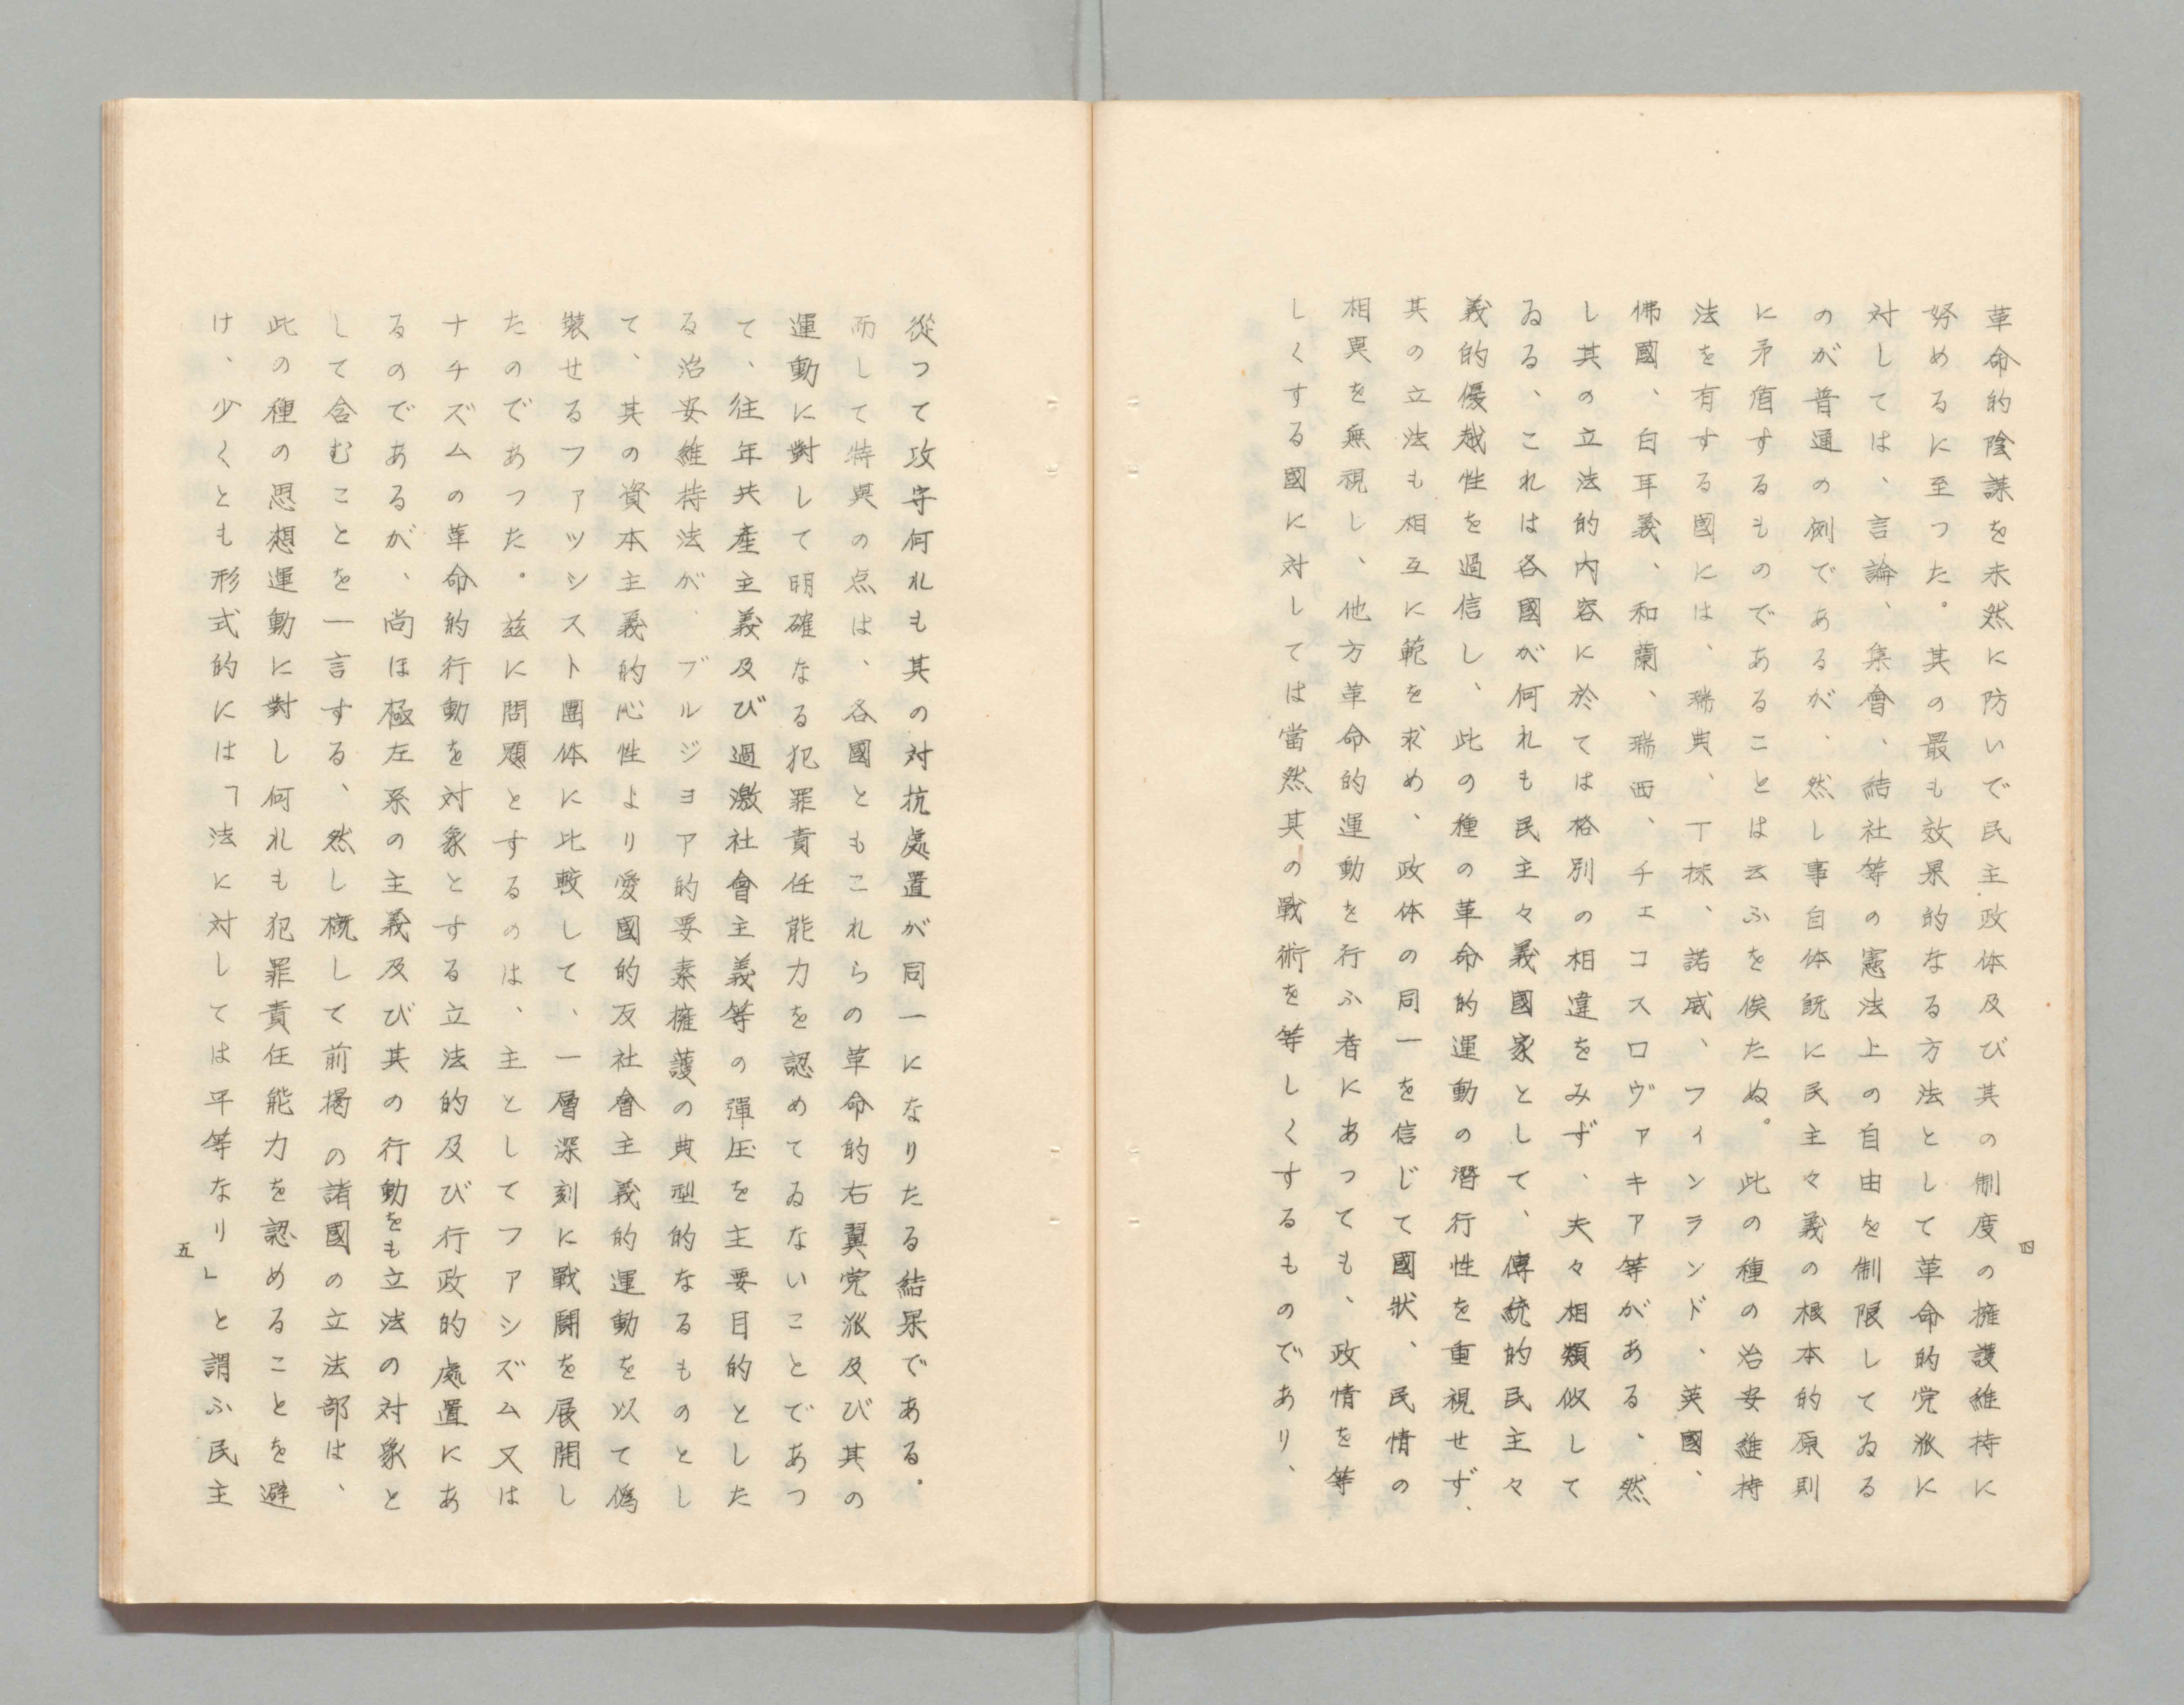 革命的陰謀を未然に防いで民主政体及び其の制度の擁護維持に
努めるに至つた。其の最も効果的なる方法として革命的党派に
対しては、言論、集會、結社等の憲法上の自由を制限してゐる
のが普通の例であるが、然し事自体既に民主々義の根本的原則
に矛盾するものであることは云ふを俟たぬ。此の種の治安維持
法を有する國には、瑞典、丁抹、諾威、フィンランド、英國、
佛國、白耳義、和蘭、瑞西、チェコスロヴァキア等がある、然
し其の立法的内容に於ては格別の相違をみず、夫々相類似して
ゐる、これは各國が何れも民主々義國家として、傳統的民主々
義的優越性を過信し、此の種の革命的運動の潛行性を重視せず、
其の立法も相互に範を求め、政体の同一を信じて國狀、民情の
相異を無視し、他方革命的運動を行ふ者にあつても、政情を等
しくする國に対しては當然其の戰術を等しくするものであり、
四
從つて攻守何れも其の対抗處置が同一になりたる結果である。
而して特異の点は、各國ともこれらの革命的右翼党派及び其の
運動に對して明確なる犯罪責任能力を認めてゐないことであつ
て、往年共產主義及び過激社會主義等の彈圧を主要目的とした
る治安維持法が、ブルジョア的要素擁護の典型的なるものとし
て、其の資本主義的心性より愛國的反社會主義的運動を以て偽
裝せるファッシスト團体に比較して、一層深刻に戰鬪を展開し
たのであつた。茲に問題とするのは、主としてファシズム又は
ナチズムの革命的行動を対象とする立法的及び行政的處置にあ
るのであるが、尚ほ極左系の主義及び其の行動をも立法の対象と
して含むことを一言する、然し概して前揭の諸國の立法部は、
此の種の思想運動に對し何れも犯罪責任能力を認めることを避
け、少くとも形式的には「法に対しては平等なり」と謂ふ民主
五